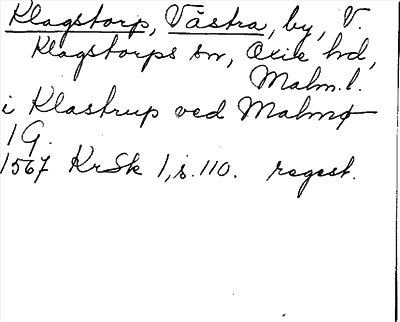 Klagstorp, Västra, by, V.
Klagstorps sn, Oxie hd,
Malm.l.
i Klastrup ved Malmø
1 G.
1567 KrSk 1, s. 110. regest.